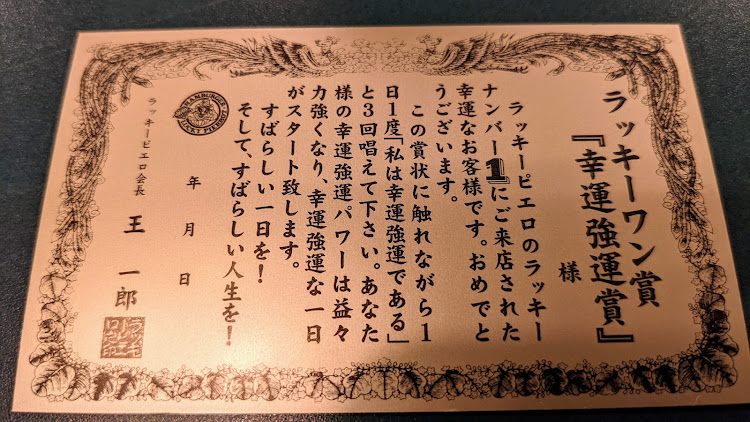 ラッキーワン賞
『幸運強運賞』
様
ラッキーピエロのラッキー
ナンバー1にご来店された
幸運なお客様です。おめでと
うございます。
この賞状に触れながら1
日1度「私は幸運強運である」
と3回唱えて下さい。あなた
様の幸運強運パワーは益々
力強くなり、幸運強運な一日
がスタート致します。
すばらしい一日を！
そして、すばらしい人生を！
年　月　日
ラッキーピエロ会長　王　一郎
HAMBURGER
LUCKY PIERROT